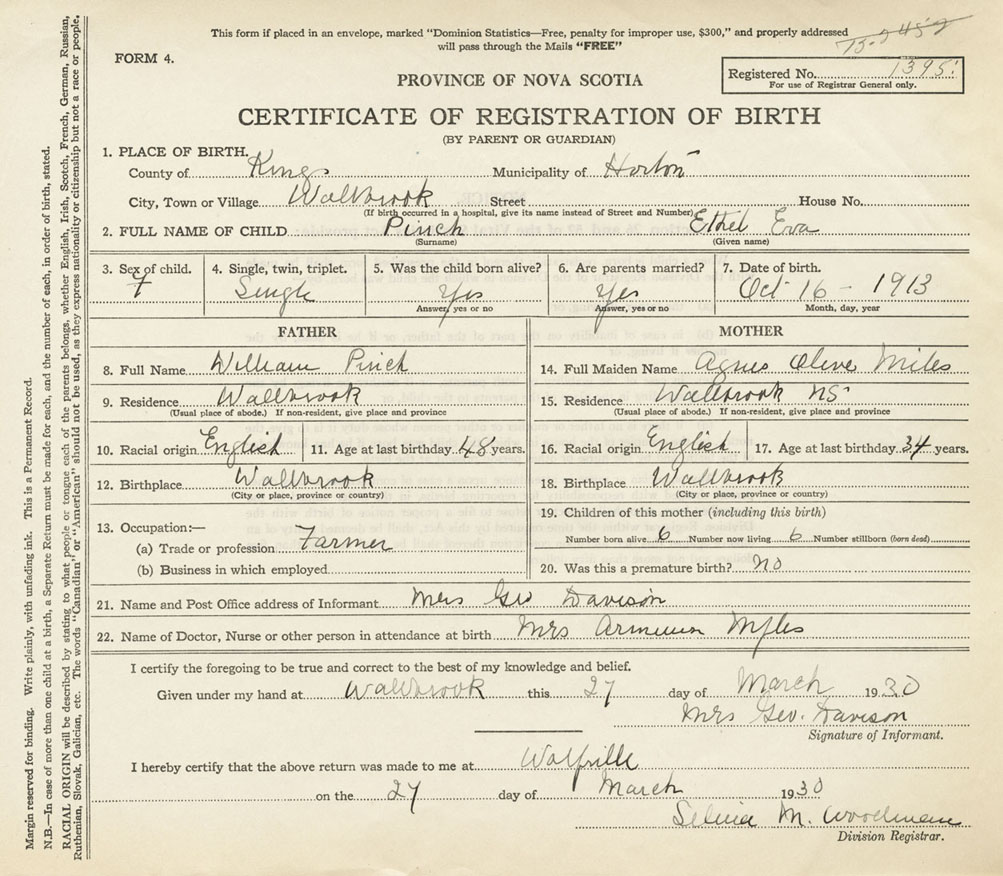 This form if placed in an envelope, marked "Dominion Statistics—Free, penalty for improper use, $300," and properly addressed
will pass through the Mails "FREE"
FORM 4.
Registered No. 1395
For use of Registrar General only.
PROVINCE OF NOVA SCOTIA
CERTIFICATE OF REGISTRATION OF BIRTH
(BY PARENT OR GUARDIAN)
1. PLACE OF BIRTH.
County of Kings Municipality of Horton
City, Town or Village Wallbrook Street House No.
(If birth occurred in a hospital, give its name instead of Street and Number)
2. FULL NAME OF CHILD Pinch Ethel Eva
(Surname) (Given name)
3. Sex of child. 4. Single, twin, triplet. 5. Was the child born alive? 6. Are parents married? 7. Date of birth.
F Single Yes Yes Oct 16 - 1913
Answer, yes or no Answer, yes or no Month, day, year
FATHER MOTHER
8. Full Name William Pinch 14. Full Maiden Name Agnes Olive Miles
9. Residence Wallbrook 15. Residence Wallbrook NS
(Usual place of abode.) If non-resident, give place and province (Usual place of abode.) If non-resident, give place and province
10. Racial origin English 11. Age at last birthday 48 years. 16. Racial origin English 17. Age at last birthday 34 years.
12. Birthplace Wallbrook 18. Birthplace Wallbrook
(City or place, province or country) (City or place, province or country)
13. Occupation:— 19. Children of this mother (including this birth)
(a) Trade or profession Farmer Number born alive 6 Number now living 6 Number stillborn (born dead)
(b) Business in which employed 20. Was this a premature birth? no
21. Name and Post Office address of Informant Mrs Geo Davison
22. Name of Doctor, Nurse or other person in attendance at birth Mrs Myles
I certify the foregoing to be true and correct to the best of my knowledge and belief.
Given under my hand at Wallbrook this 27 day of March 1930
Mrs Geo. Davison
Signature of Informant.
I hereby certify that the above return was made to me at Wolfville
on the 27 day of March 1930
M. Woodman
Division Registrar.
Margin reserved for binding. Write plainly, with unfading ink. This is a Permanent Record.
N.B.—In case of more than one child at a birth, a Separate Return must be made for each, and the number of each, in order of birth, stated.
RACIAL ORIGIN will be described by stating to what people or tongue each of the parents belongs, whether English, Irish, Scotch, French, German, Russian,
Ruthenian, Slovak, Galician, etc. The words "Canadian" or "American" should not be used, as they express nationality or citizenship but not a race or people.